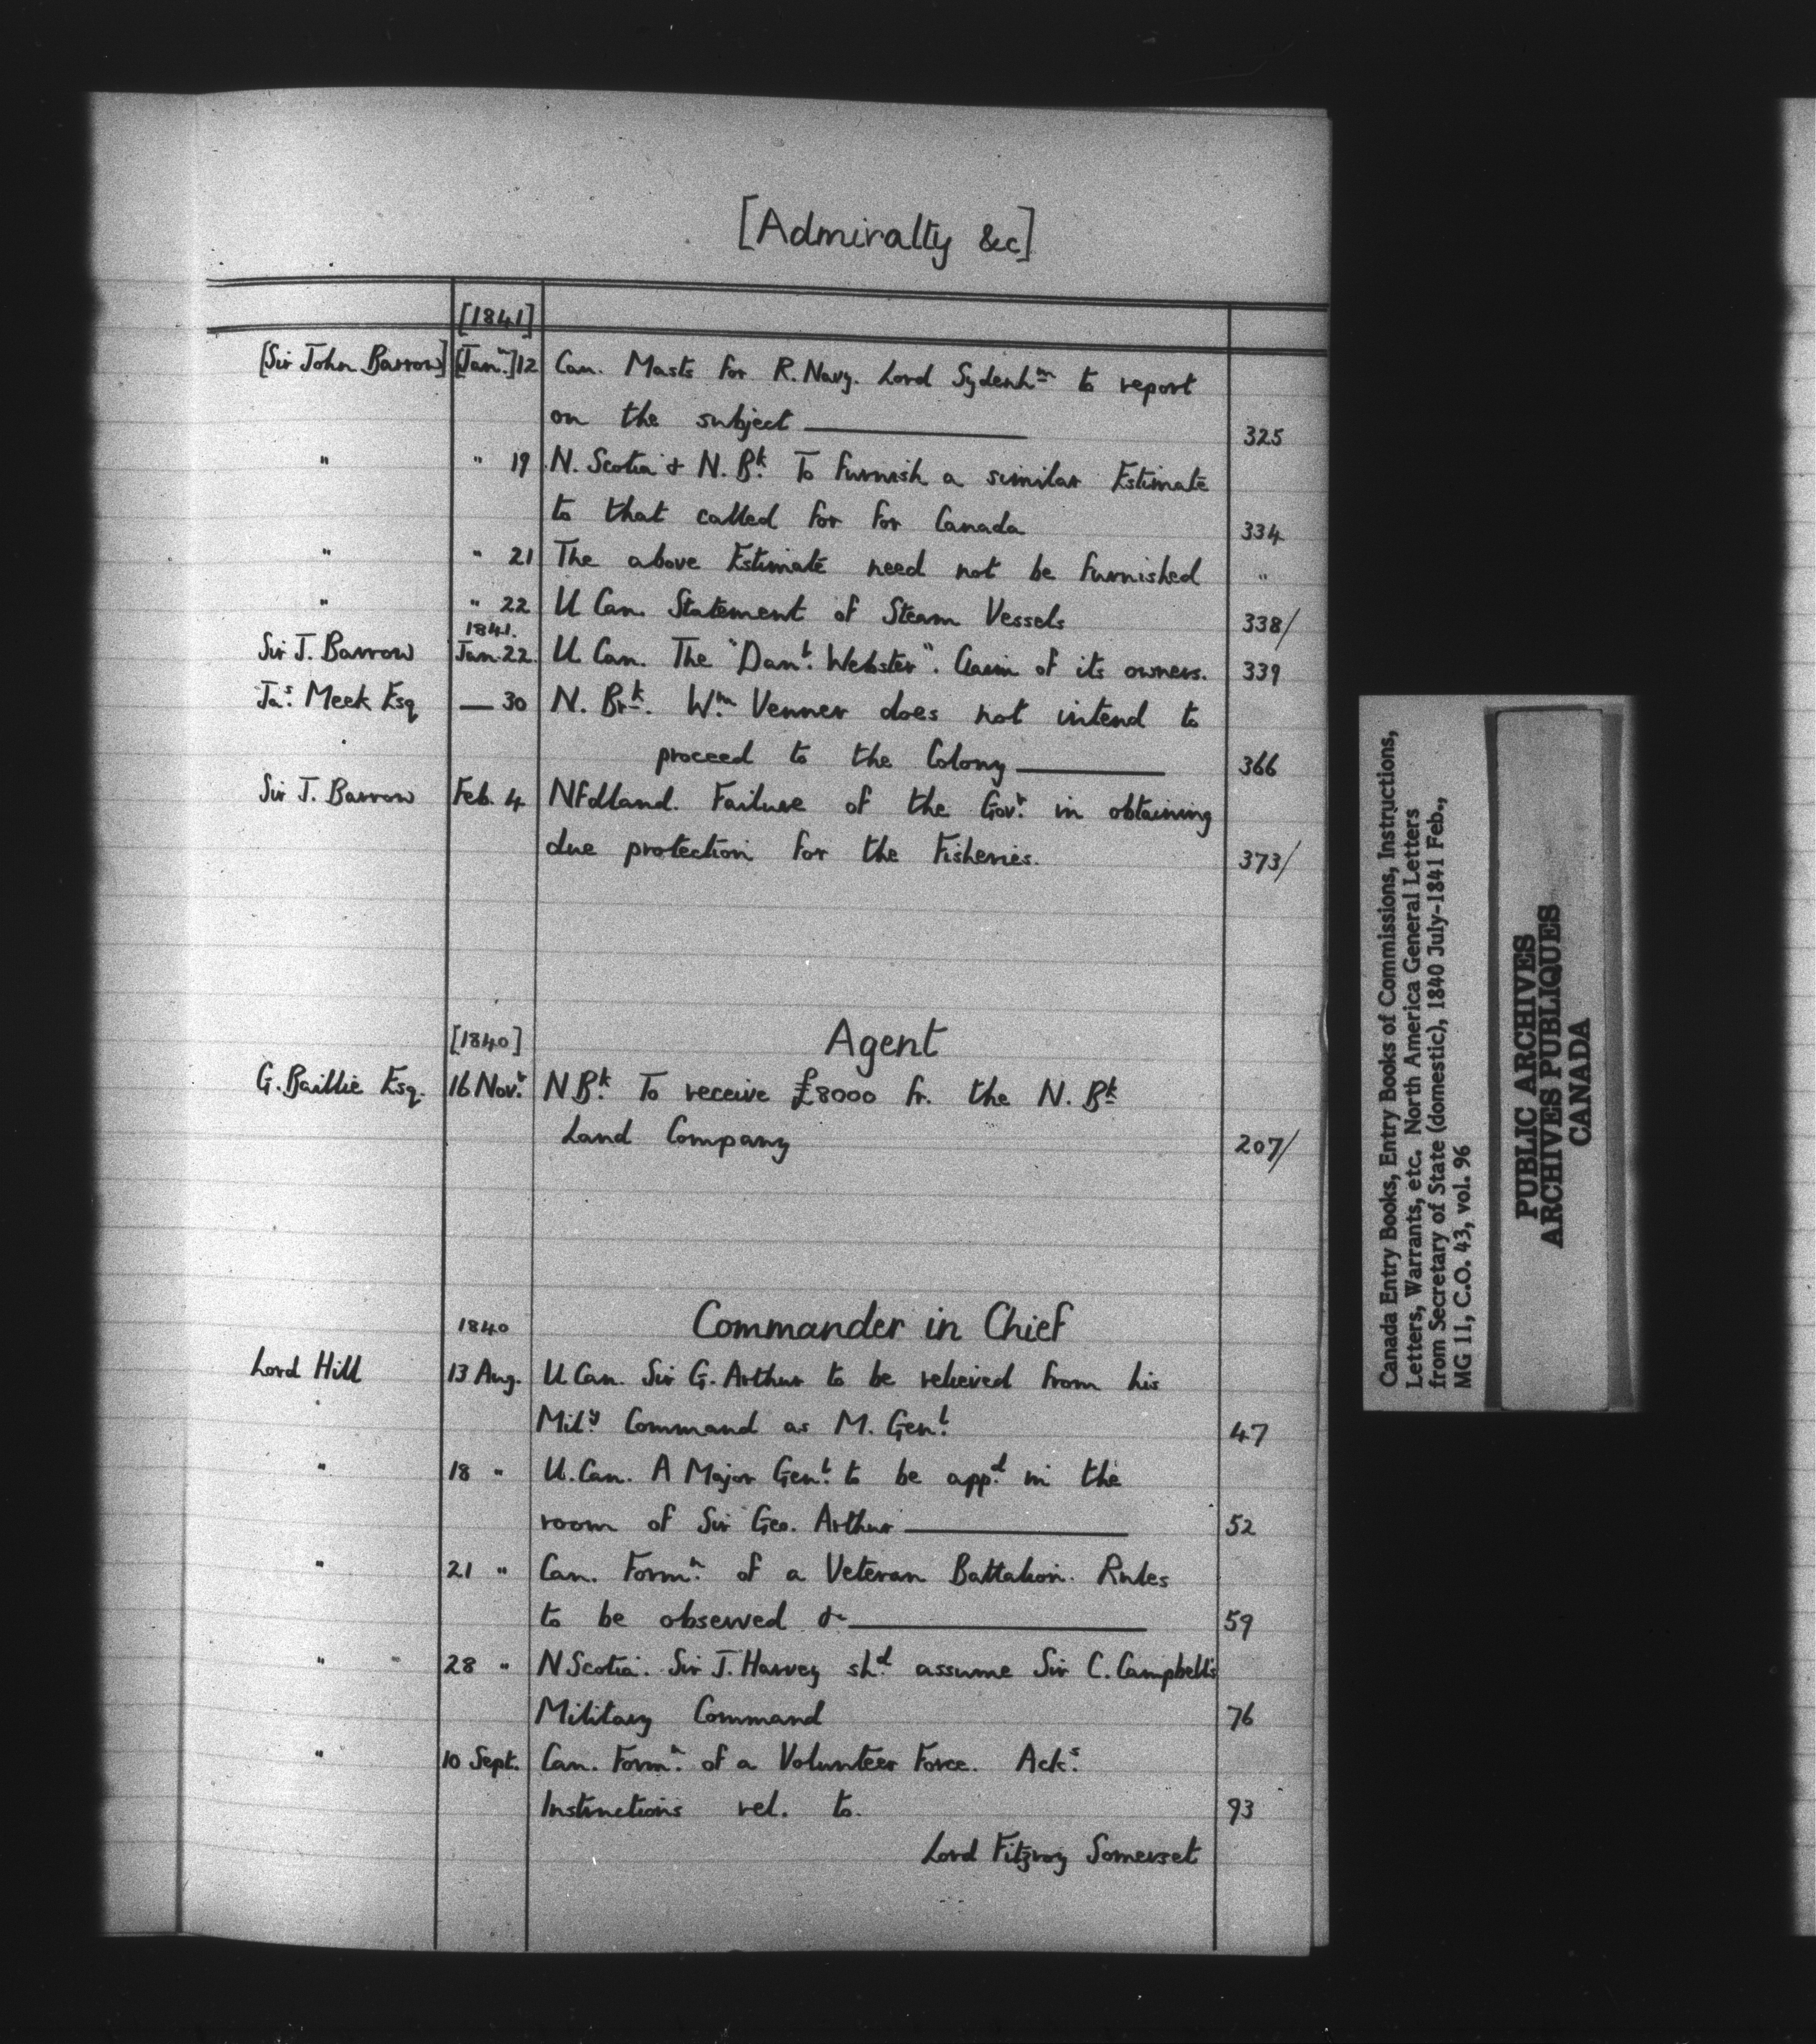 [Admiralty &c]
[1841]
[Sir John Barrow] [Janʳ.] 12 Can. Masts for R. Navy. Lord Sydenhᵐ to report
on the subject 325
" " 19 N. Scotia & N. Bᵏ. To furnish a similar Estimate
to that called for for Canada 334
" " 21 The above Estimate need not be furnished "
" " 22 U Can. Statement of Steam Vessels 338/
1841.
Sir J. Barrow Jan. 22. U. Can. The "Danˡ. Webster". Claim of its owners. 339
Jaˢ. Meek Esq — 30 N. Brᵏ. Wᵐ Venner does not intend to
proceed to the Colony 366
Sir J. Barrow Feb. 4 Nfdland. Failure of the Govʳ. in obtaining
due protection for the Fisheries. 373/
[1840] Agent
G. Baillie Esq. 16 Novʳ. N Bᵏ. To receive £8000 fr. the N. Bᵏ
Land Company 207/
1840 Commander in Chief
Lord Hill 13 Aug. U Can. Sir G. Arthur to be relieved from his
Milʸ. Command as M. Genˡ. 47
" 18 " U. Can. A Major Genˡ. to be appᵈ. in the
room of Sir Geo. Arthur 52
" 21 " Can. Formⁿ. of a Veteran Battalion. Rules
to be observed & 59
" " 28 " N Scotia. Sir J. Harvey shᵈ. assume Sir C. Campbell's
Military Command 76
" 10 Sept. Can. Formⁿ. of a Volunteer Force. Ackˢ.
Instructions rel. to. 93
Lord Fitzroy Somerset
Canada Entry Books, Entry Books of Commissions, Instructions,
Letters, Warrants, etc. North America General Letters
from Secretary of State (domestic), 1840 July-1841 Feb.,
MG 11, C.O. 43, vol. 96
PUBLIC ARCHIVES
ARCHIVES PUBLIQUES
CANADA